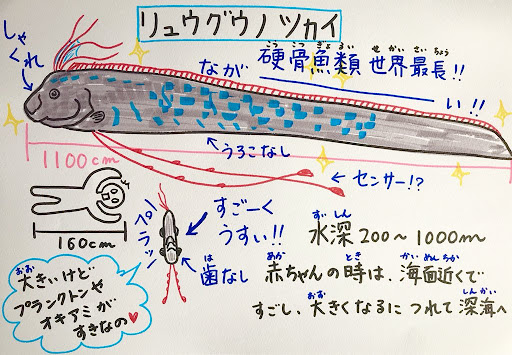 リュウグウノツカイ
しゃくれ
こうこつぎょるい せかいさいちょう
硬骨魚類 世界最長!!
ながい!!
うろこなし
1100cm
センサー!?
160cm
ペラッ
すごーく
うすい!!
は
歯なし
ずいしん
水深200~1000m
あか とき かいめんちか
赤ちゃんの時は、海面近くで
おお しんかい
すごし、大きくなるにつれて深海へ
おお
大きいけど
プランクトンや
オキアミが
すきなの♥